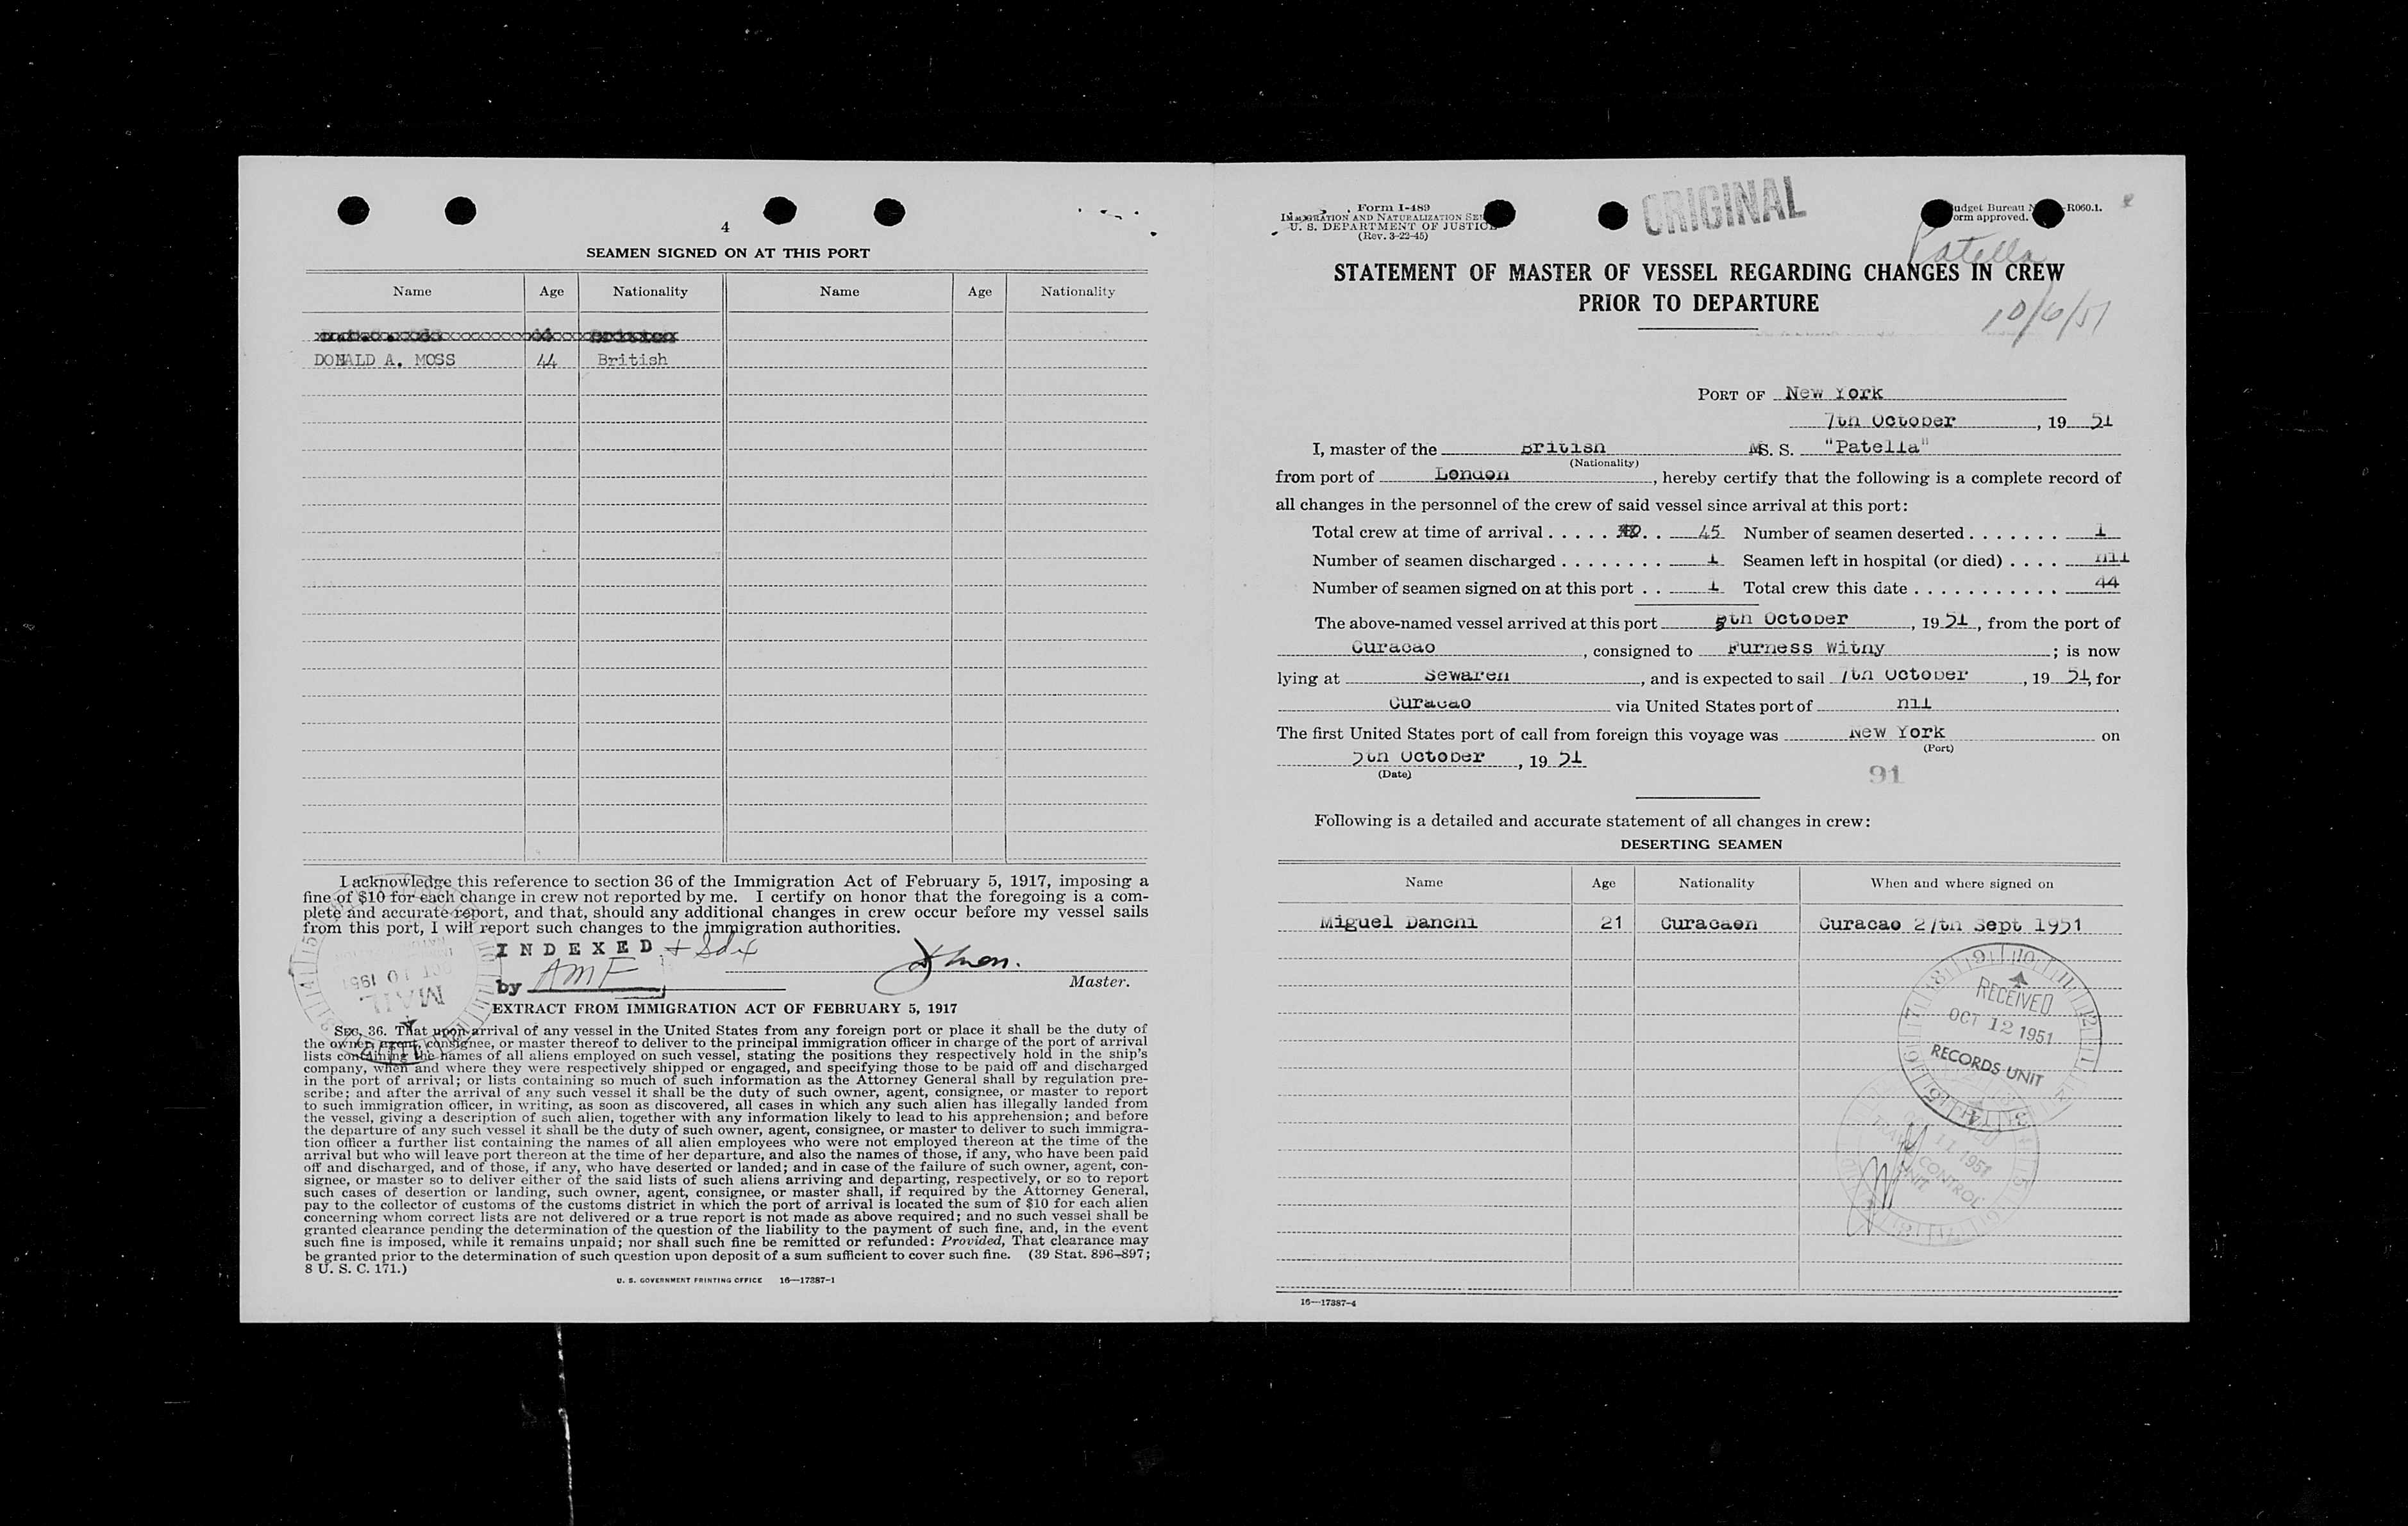 4
SEAMEN SIGNED ON AT THIS PORT
Name Age Nationality Name Age Nationality
DONALD A. MOSS 44 British
I acknowledge this reference to section 36 of the Immigration Act of February 5, 1917, imposing a
fine of $10 for each change in crew not reported by me. I certify on honor that the foregoing is a com-
plete and accurate report, and that, should any additional changes in crew occur before my vessel sails
from this port, I will report such changes to the immigration authorities.
INDEXED
by AMF
Master.
OCT 10 1951
MAIL
EXTRACT FROM IMMIGRATION ACT OF FEBRUARY 5, 1917
SEC. 36. That upon arrival of any vessel in the United States from any foreign port or place it shall be the duty of
the owner, agent, consignee, or master thereof to deliver to the principal immigration officer in charge of the port of arrival
lists containing the names of all aliens employed on such vessel, stating the positions they respectively hold in the ship's
company, when and where they were respectively shipped or engaged, and specifying those to be paid off and discharged
in the port of arrival; or lists containing so much of such information as the Attorney General shall by regulation pre-
scribe; and after the arrival of any such vessel it shall be the duty of such owner, agent, consignee, or master to report
to such immigration officer, in writing, as soon as discovered, all cases in which any such alien has illegally landed from
the vessel, giving a description of such alien, together with any information likely to lead to his apprehension; and before
the departure of any such vessel it shall be the duty of such owner, agent, consignee, or master to deliver to such immigra-
tion officer a further list containing the names of all alien employees who were not employed thereon at the time of the
arrival but who will leave port thereon at the time of her departure, and also the names of those, if any, who have been paid
off and discharged, and of those, if any, who have deserted or landed; and in case of the failure of such owner, agent, con-
signee, or master so to deliver either of the said lists of such aliens arriving and departing, respectively, or so to report
such cases of desertion or landing, such owner, agent, consignee, or master shall, if required by the Attorney General,
pay to the collector of customs of the customs district in which the port of arrival is located the sum of $10 for each alien
concerning whom correct lists are not delivered or a true report is not made as above required; and no such vessel shall be
granted clearance pending the determination of the question of the liability to the payment of such fine, and, in the event
such fine is imposed, while it remains unpaid; nor shall such fine be remitted or refunded: Provided, That clearance may
be granted prior to the determination of such question upon deposit of a sum sufficient to cover such fine. (39 Stat. 896-897;
8 U. S. C. 171.)
U. S. GOVERNMENT PRINTING OFFICE 16—17387-1
Form I-489
IMMIGRATION AND NATURALIZATION
U. S. DEPARTMENT OF JUSTICE
(Rev. 3-22-45)
ORIGINAL
Budget Bureau -R060.1.
Form approved.
Patella
STATEMENT OF MASTER OF VESSEL REGARDING CHANGES IN CREW
PRIOR TO DEPARTURE
10/6/51
PORT OF New York
7th October, 19 51
I, master of the British MS. S. "Patella"
(Nationality)
from port of London, hereby certify that the following is a complete record of
all changes in the personnel of the crew of said vessel since arrival at this port:
Total crew at time of arrival . . . . . 45 Number of seamen deserted . . . . . . . 1
Number of seamen discharged . . . . . . . . 1 Seamen left in hospital (or died) . . . . nil
Number of seamen signed on at this port . . 1 Total crew this date . . . . . . . . . . . 44
The above-named vessel arrived at this port 5th October, 19 51, from the port of
Curacao, consigned to Furness Witny; is now
lying at Sewaren, and is expected to sail 7th October, 19 51, for
Curacao via United States port of nil.
The first United States port of call from foreign this voyage was New York on
(Port)
5th October, 19 51
(Date)
91
Following is a detailed and accurate statement of all changes in crew:
DESERTING SEAMEN
Name Age Nationality When and where signed on
Miguel Danchi 21 Curacaon Curacao 27th Sept 1951
RECEIVED
OCT 12 1951
RECORDS UNIT
11 1951
CONTROL
UNIT
16—17387-4